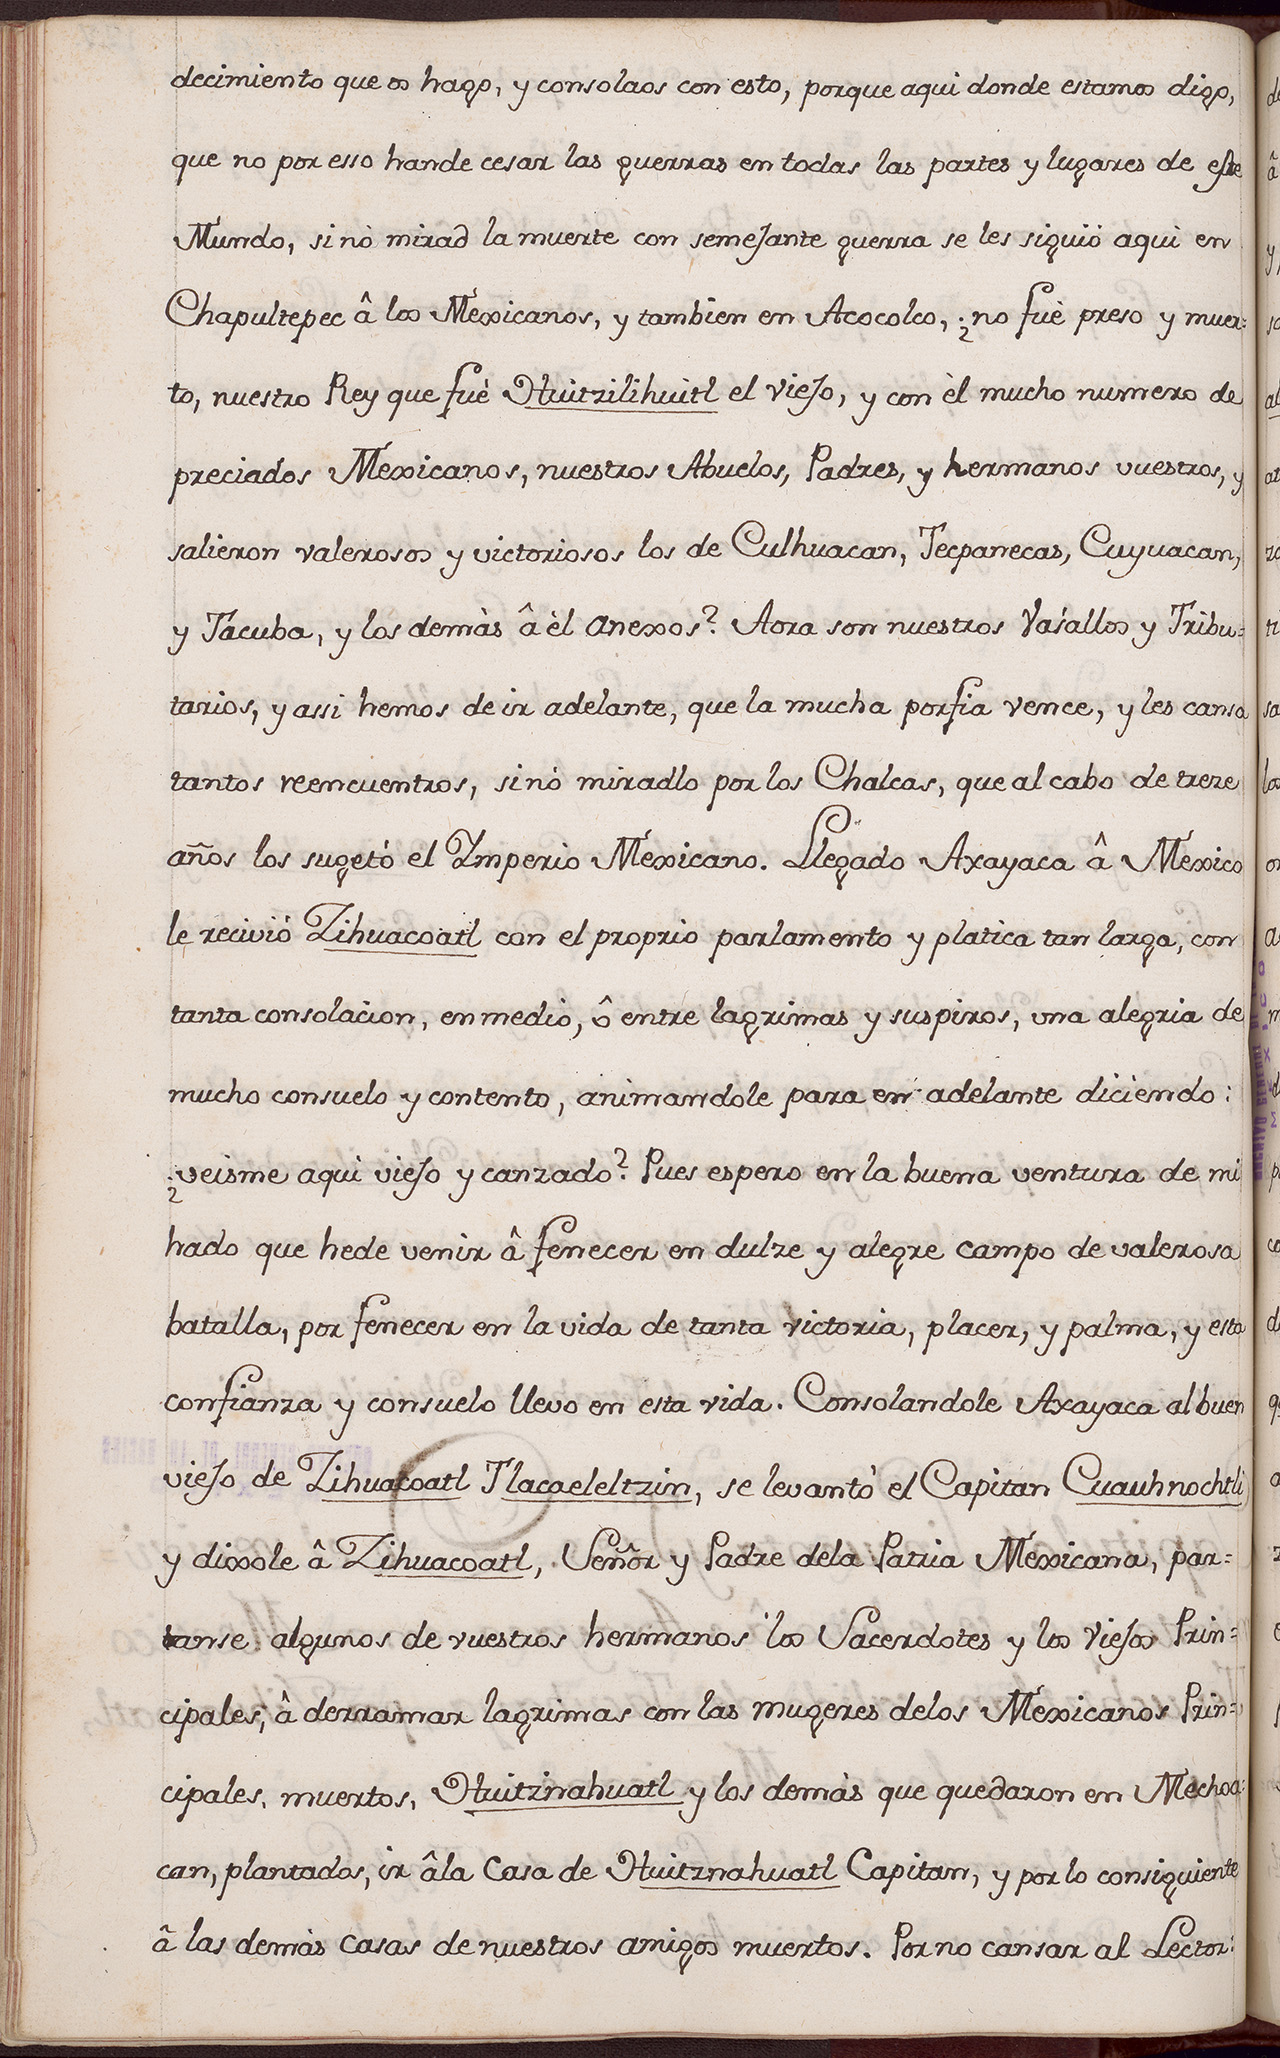 decimiento que os hago, y consolaos con esto, porque aqui donde estamos digo,
que no por esso hande cesar las guerras en todas las partes y lugares de este
Mundo, sinò mirad la muerte con semejante guerra se les siguió aquì en
Chapultepec â los Mexicanos, y tambien en Acocolco, ¿no fuè preso y muer=
to, nuestro Rey que fuè Huitzilihuitl el viejo, y con èl mucho numero de
preciados Mexicanos, nuestros Abuelos, Padres, y hermanos vuestros, y
salieron valerosos y victoriosos los de Culhuacan, Tecpanecas, Cuyuacan,
y Tácuba, y los demàs â èl anexos? Aora son nuestros Vasallos y Tribu=
tarios, y assi hemos de ir adelante, que la mucha porfia vence, y les cansa
tantos reencuentros, sinò miradlo por los Chalcas, que al cabo de treze
años los sugetó el Ymperio Mexicano. Llegado Axayaca â Mexico
le recivió Zihuacoatl con el proprio parlamento y platica tan larga, con
tanta consolacion, en medio, ô entre lagrimas y suspiros, una alegria de
mucho consuelo y contento, animandole para en adelante diciendo:
¿veisme aquì viejo y canzado? Pues espero en la buena ventura de mi
hado que hede venir â fenecer en dulze y alegre campo de valerosa
batalla, por fenecer en la vida de tanta victoria, placer, y palma, y esta
confianza y consuelo llevo en esta vida. Consolandole Axayaca al buen
viejo de Zihuacoatl Tlacaeleltzin, se levantó el Capitan Cuauhnochtli
y dixole â Zihuacoatl, Señor y Padre dela Patria Mexicana, par=
tanse algunos de vuestros hermanos los Sacerdotes y los Viejos Prin=
cipales, â derramar lagrimas con las mugeres delos Mexicanos Prin=
cipales, muertos, Huitznahuatl y los demàs que quedaron en Mechoa=
can, plantados, ir âla Casa de Huitznahuatl Capitan, y por lo consiguiente
â las demàs casas de nuestros amigos muertos. Por no cansar al Lector: